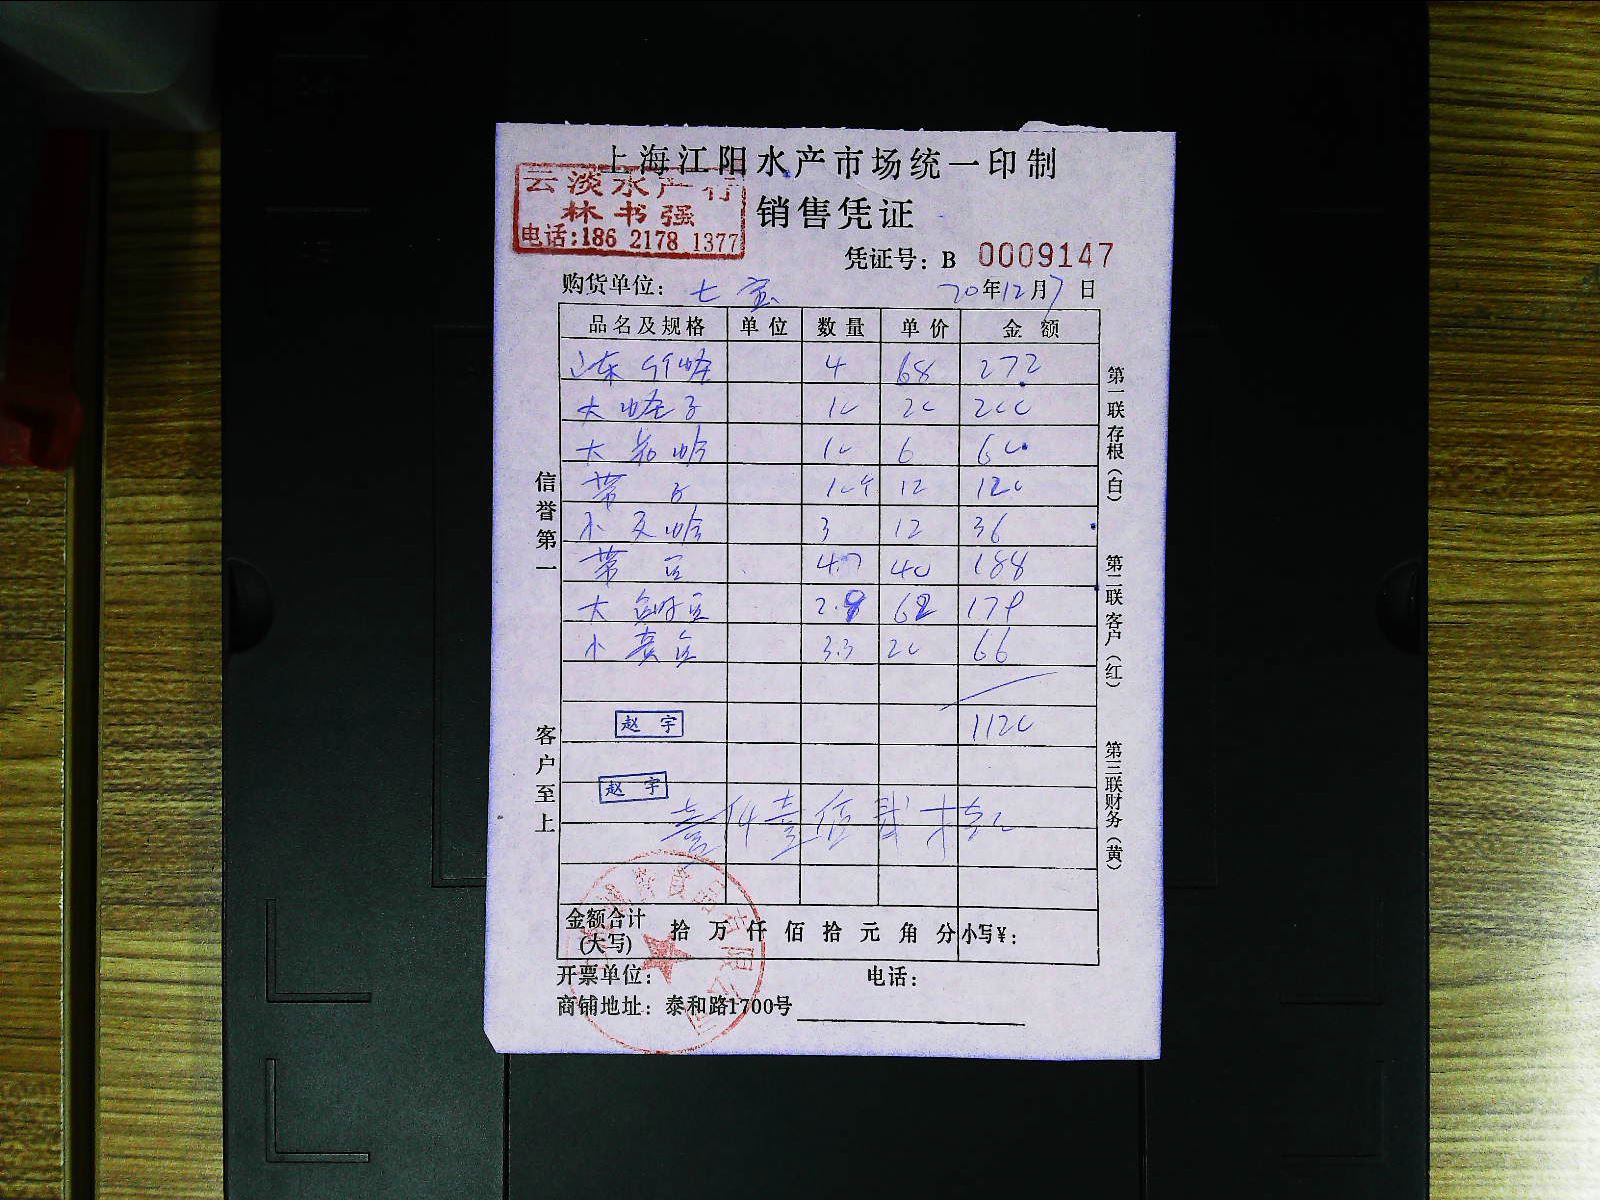 上海江阳水产市场统一印制
云淡水产行
林书强
电话:186 2178 1377
销售凭证
凭证号: B 0009147
购货单位: 七宝 20年12月7日
品名及规格 单位 数量 单价 金额
山东竹蛏 4 68 272
大蛏子 10 20 200
大 蛤 10 6 60
带子 10个 12 120
小 蛤 3 12 36
4.7 40 188
大 2.9 62 179
小黄鱼 3.3 20 66
1120
赵宇
赵宇
壹仟壹佰贰拾元
金额合计(大写) 拾 万 仟 佰 拾 元 角 分 小写¥:
开票单位: 电话:
商铺地址: 泰和路1700号
信誉第一
客户至上
第一联存根(白)
第二联客户(红)
第三联财务(黄)
食品有限公司